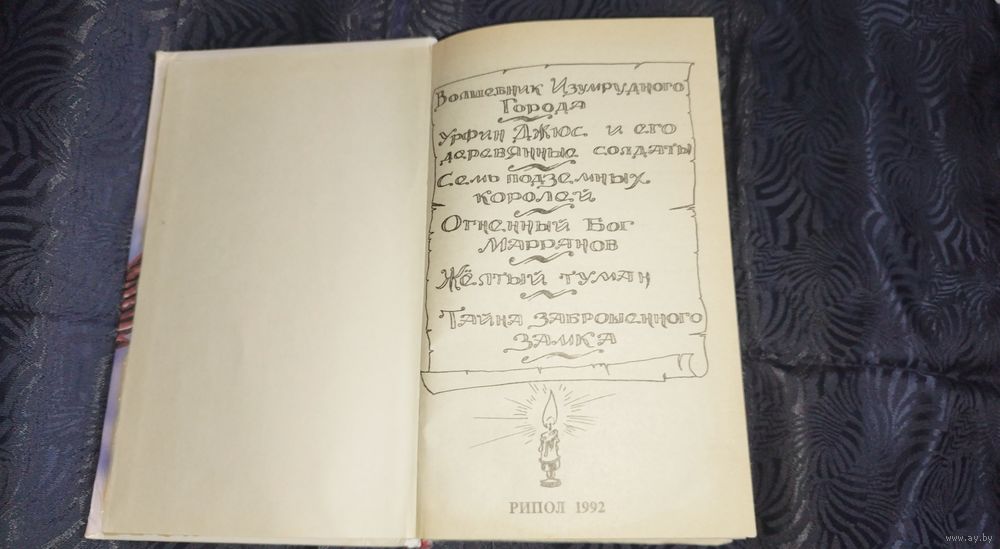 Волшебник Изумрудного
Города
Урфин Джюс и его
деревянные солдаты
Семь подземных
королей
Огненный Бог
Марранов
Жёлтый туман
Тайна заброшенного
замка
РИПОЛ 1992
www.ay.by